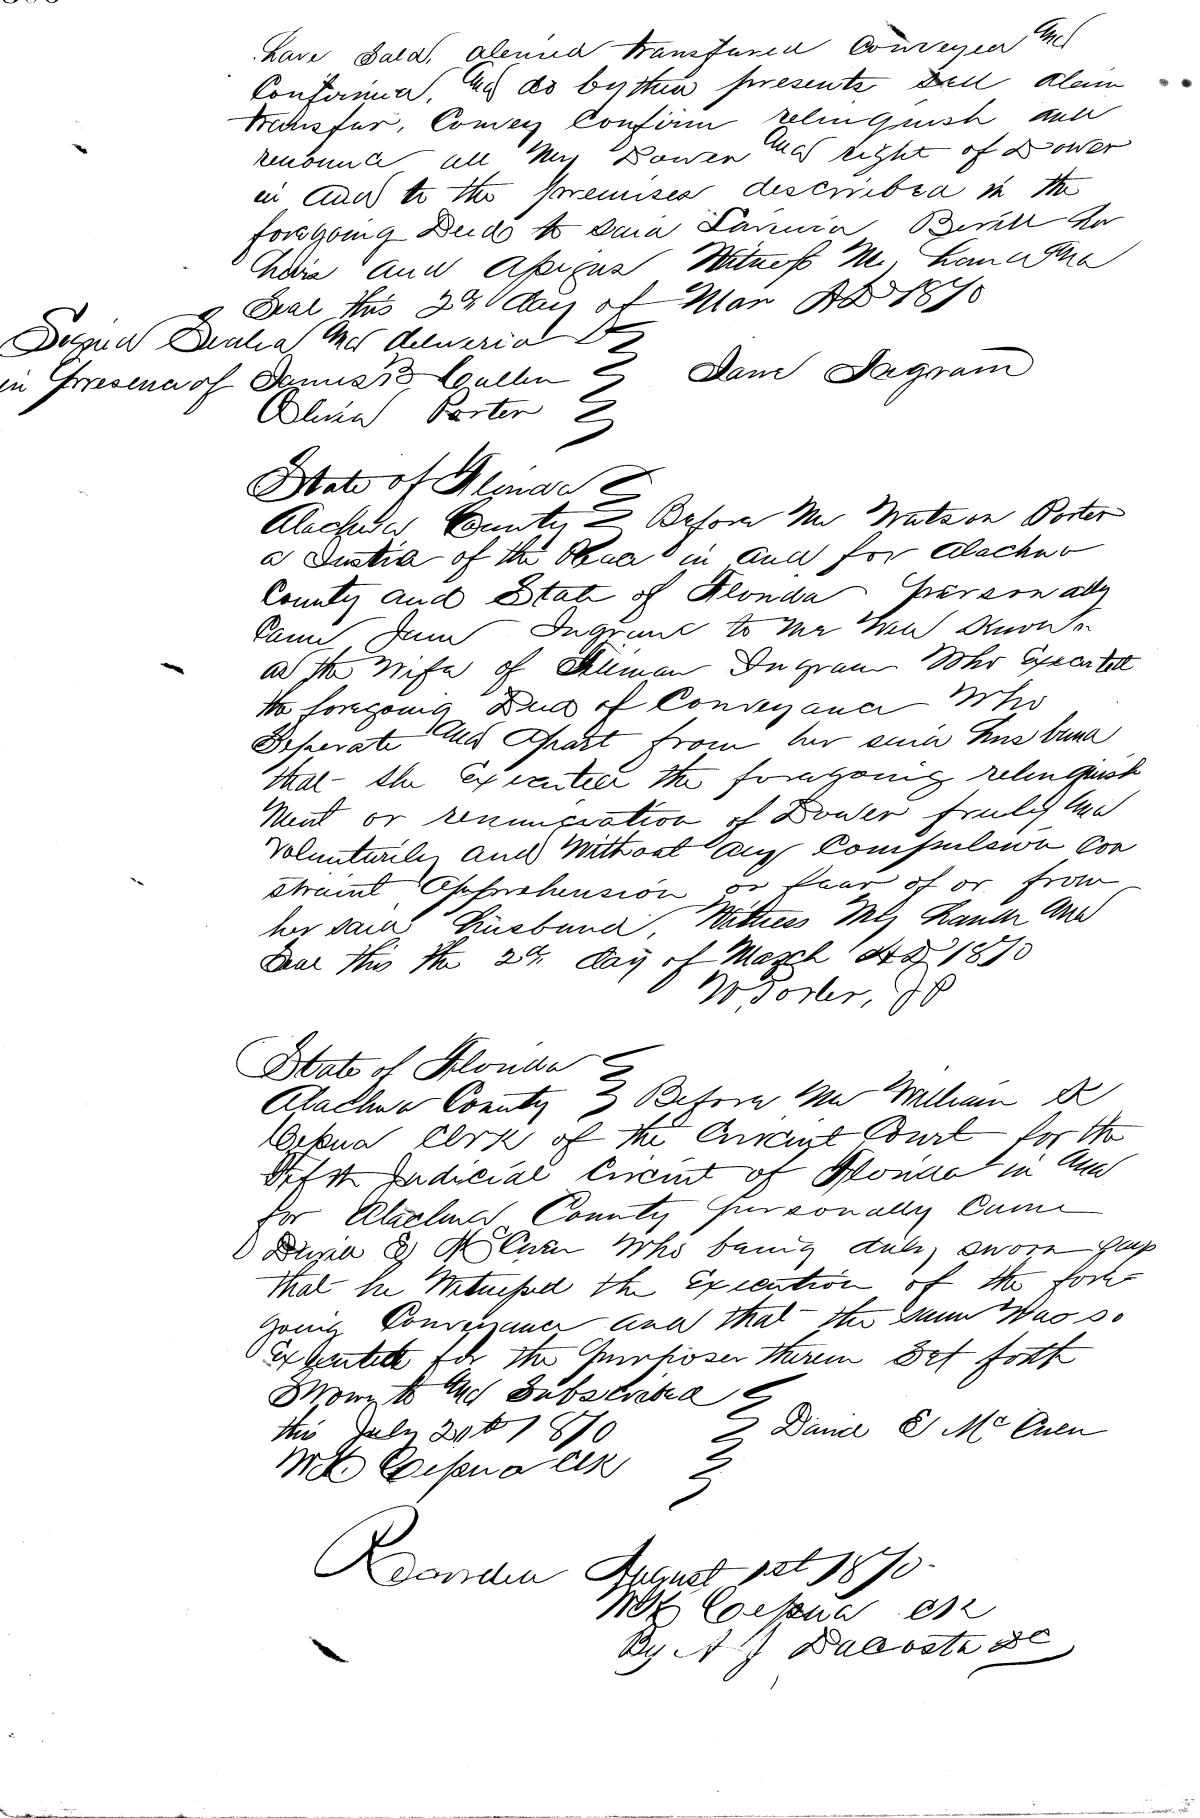 have Sold, aliened transfured Conveyed And
Confirmed, And do by thes presents Sell Alein
transfur, Convey Confirm relinquish and
renounce all My Dower And right of Dower
in and to the premises described in the
foregoing Deed to said Berill her
heirs and Assigns Witness My hand And
Seal this 2nd day of Mar AD 1870
Signed Sealed And deliverd
in Presence of James B Cullen Jane Ingram
Olivia Porter
State of Florida
Alachua County Before Me Watson Porter
a Justice of the Peace in and for Alachua
County and State of Florida personally
Came Jane Ingram to me Well Known
as the Wife of Ingram Who Executed
the foregoing Deed of Conveyance Who
Seperate And Apart from her said husband
that she Executed the foregoing relinquish
Ment or renunciation of Dower freely And
Voluntarily and Without any Compulsion Con
straint Apprehension or fear of or from
her said Husband, Witness My hand And
Seal this the 2nd day of March AD 1870
W. Porter, JP
State of Florida
Alachua County Before Me William K
Cessna Clerk of the Circuit Court for the
Fifth Judicial Circuit of Florida in And
for Alachua County personally Came
David E McCuen Who being duly sworn says
that he Witnessed the Execution of the fore=
going Conveyance and that the same Was so
Executed for the purposes therein Set forth
Sworn to And Subscribed
this July 20th 1870 David E McCuen
WK Cessna Clk
Recorded August 1st 1870.
WK Cessna Clk
By A J DaCosta DC